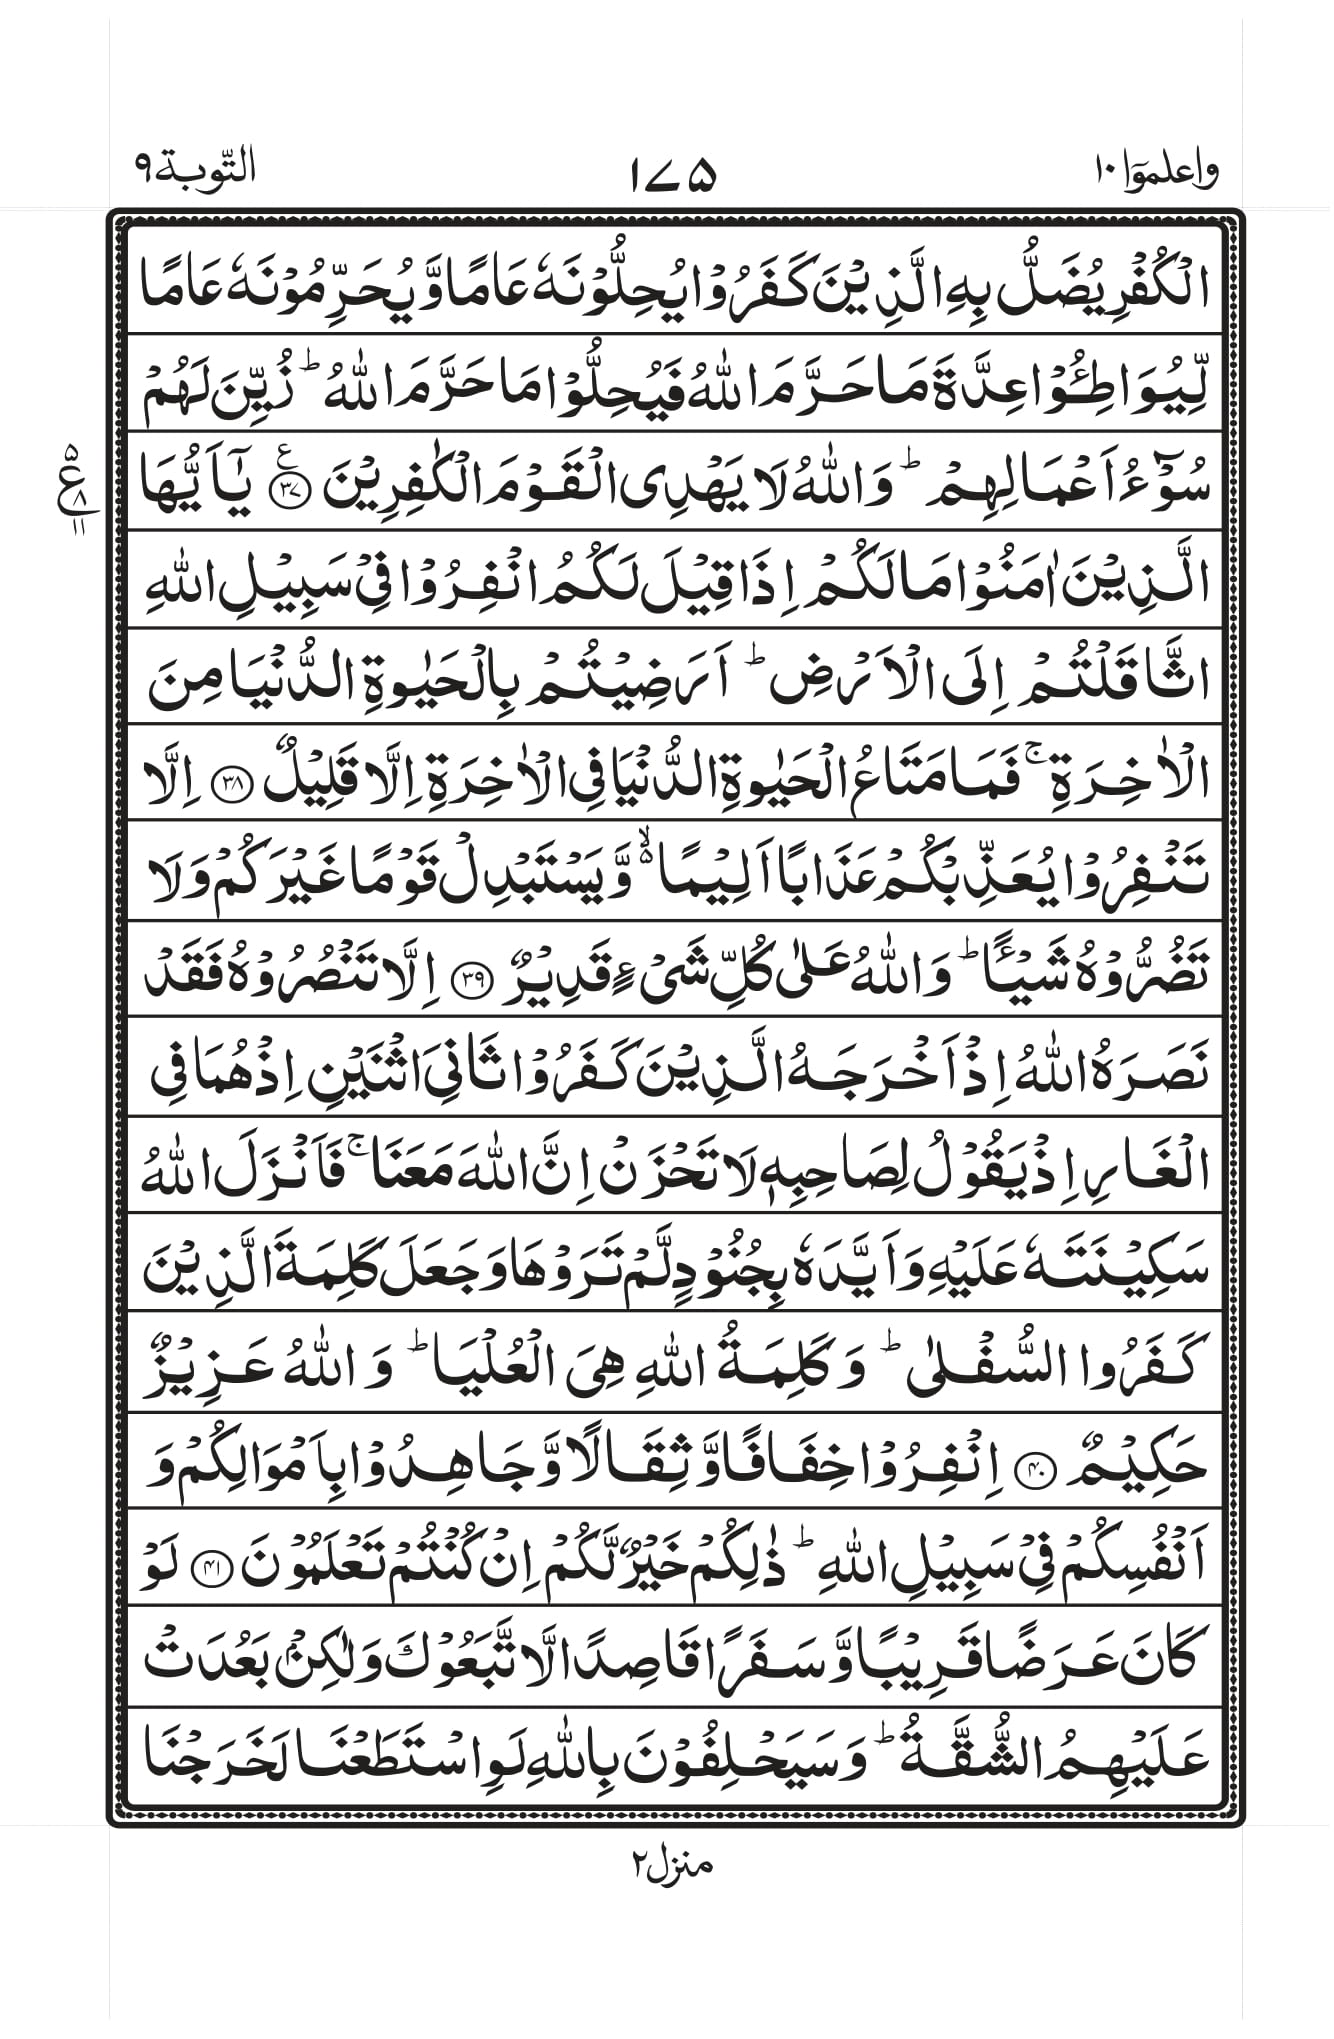 واعلموۤا ۱۰
۱۷۵
التّوبة ۹
الْكُفْرِ يُضَلُّ بِهِ الَّذِيْنَ كَفَرُوْا يُحِلُّوْنَهٗ عَامًا وَّ يُحَرِّمُوْنَهٗ عَامًا
لِّيُوَاطِـُٔوْا عِدَّةَ مَا حَرَّمَ اللّٰهُ فَيُحِلُّوْا مَا حَرَّمَ اللّٰهُ ؕ زُيِّنَ لَهُمْ
سُوْٓءُ اَعْمَالِهِمْ ؕ وَ اللّٰهُ لَا يَهْدِی الْقَوْمَ الْكٰفِرِيْنَ ﴿۳۷﴾ ع يٰۤاَيُّهَا
ع ۵ ۸ ۱۱
الَّذِيْنَ اٰمَنُوْا مَا لَكُمْ اِذَا قِيْلَ لَكُمُ انْفِرُوْا فِیْ سَبِيْلِ اللّٰهِ
اثَّاقَلْتُمْ اِلَی الْاَرْضِ ؕ اَرَضِيْتُمْ بِالْحَيٰوةِ الدُّنْيَا مِنَ
الْاٰخِرَةِ ۚ فَمَا مَتَاعُ الْحَيٰوةِ الدُّنْيَا فِی الْاٰخِرَةِ اِلَّا قَلِيْلٌ ﴿۳۸﴾ اِلَّا
تَنْفِرُوْا يُعَذِّبْكُمْ عَذَابًا اَلِيْمًا ۙ۬ وَّ يَسْتَبْدِلْ قَوْمًا غَيْرَكُمْ وَ لَا
تَضُرُّوْهُ شَيْـًٔا ؕ وَ اللّٰهُ عَلٰی كُلِّ شَیْءٍ قَدِيْرٌ ﴿۳۹﴾ اِلَّا تَنْصُرُوْهُ فَقَدْ
نَصَرَهُ اللّٰهُ اِذْ اَخْرَجَهُ الَّذِيْنَ كَفَرُوْا ثَانِیَ اثْنَيْنِ اِذْ هُمَا فِی
الْغَارِ اِذْ يَقُوْلُ لِصَاحِبِهٖ لَا تَحْزَنْ اِنَّ اللّٰهَ مَعَنَا ۚ فَاَنْزَلَ اللّٰهُ
سَكِيْنَتَهٗ عَلَيْهِ وَ اَيَّدَهٗ بِجُنُوْدٍ لَّمْ تَرَوْهَا وَ جَعَلَ كَلِمَةَ الَّذِيْنَ
كَفَرُوا السُّفْلٰی ؕ وَ كَلِمَةُ اللّٰهِ هِیَ الْعُلْيَا ؕ وَ اللّٰهُ عَزِيْزٌ
حَكِيْمٌ ﴿۴۰﴾ اِنْفِرُوْا خِفَافًا وَّ ثِقَالًا وَّ جَاهِدُوْا بِاَمْوَالِكُمْ وَ
اَنْفُسِكُمْ فِیْ سَبِيْلِ اللّٰهِ ؕ ذٰلِكُمْ خَيْرٌ لَّكُمْ اِنْ كُنْتُمْ تَعْلَمُوْنَ ﴿۴۱﴾ لَوْ
كَانَ عَرَضًا قَرِيْبًا وَّ سَفَرًا قَاصِدًا لَّاتَّبَعُوْكَ وَ لٰكِنْۢ بَعُدَتْ
عَلَيْهِمُ الشُّقَّةُ ؕ وَ سَيَحْلِفُوْنَ بِاللّٰهِ لَوِ اسْتَطَعْنَا لَخَرَجْنَا
منزل ۲